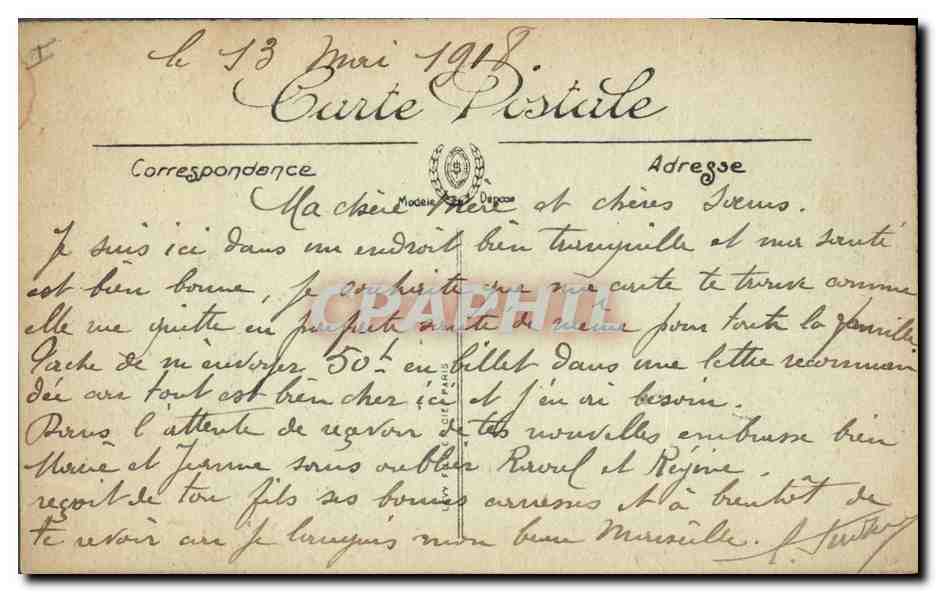 I
le 13 Mai 1918.
Carte Postale
Correspondance
Adresse
Modèle Déposé
Ma chère Mère et chères Sœurs.
Je suis ici dans un endroit bien tranquille et ma santé
est bien bonne, je souhaite que ma carte te trouve comme
elle me quitte en parfaite santé de même pour toute la famille
Tâche de m'envoyer 50f en billet dans une lettre recomman
dée car tout est bien cher ici et j'en ai besoin.
Dans l'attente de reçevoir de tes nouvelles embrasse bien
Marie et Jeanne sans oublier Raoul et Régine.
reçoit de ton fils ses bonnes caresses et à bientôt de
te revoir car je languis mon beau Marseille.
CPAPHIL
LEVY FILS ET CIE PARIS